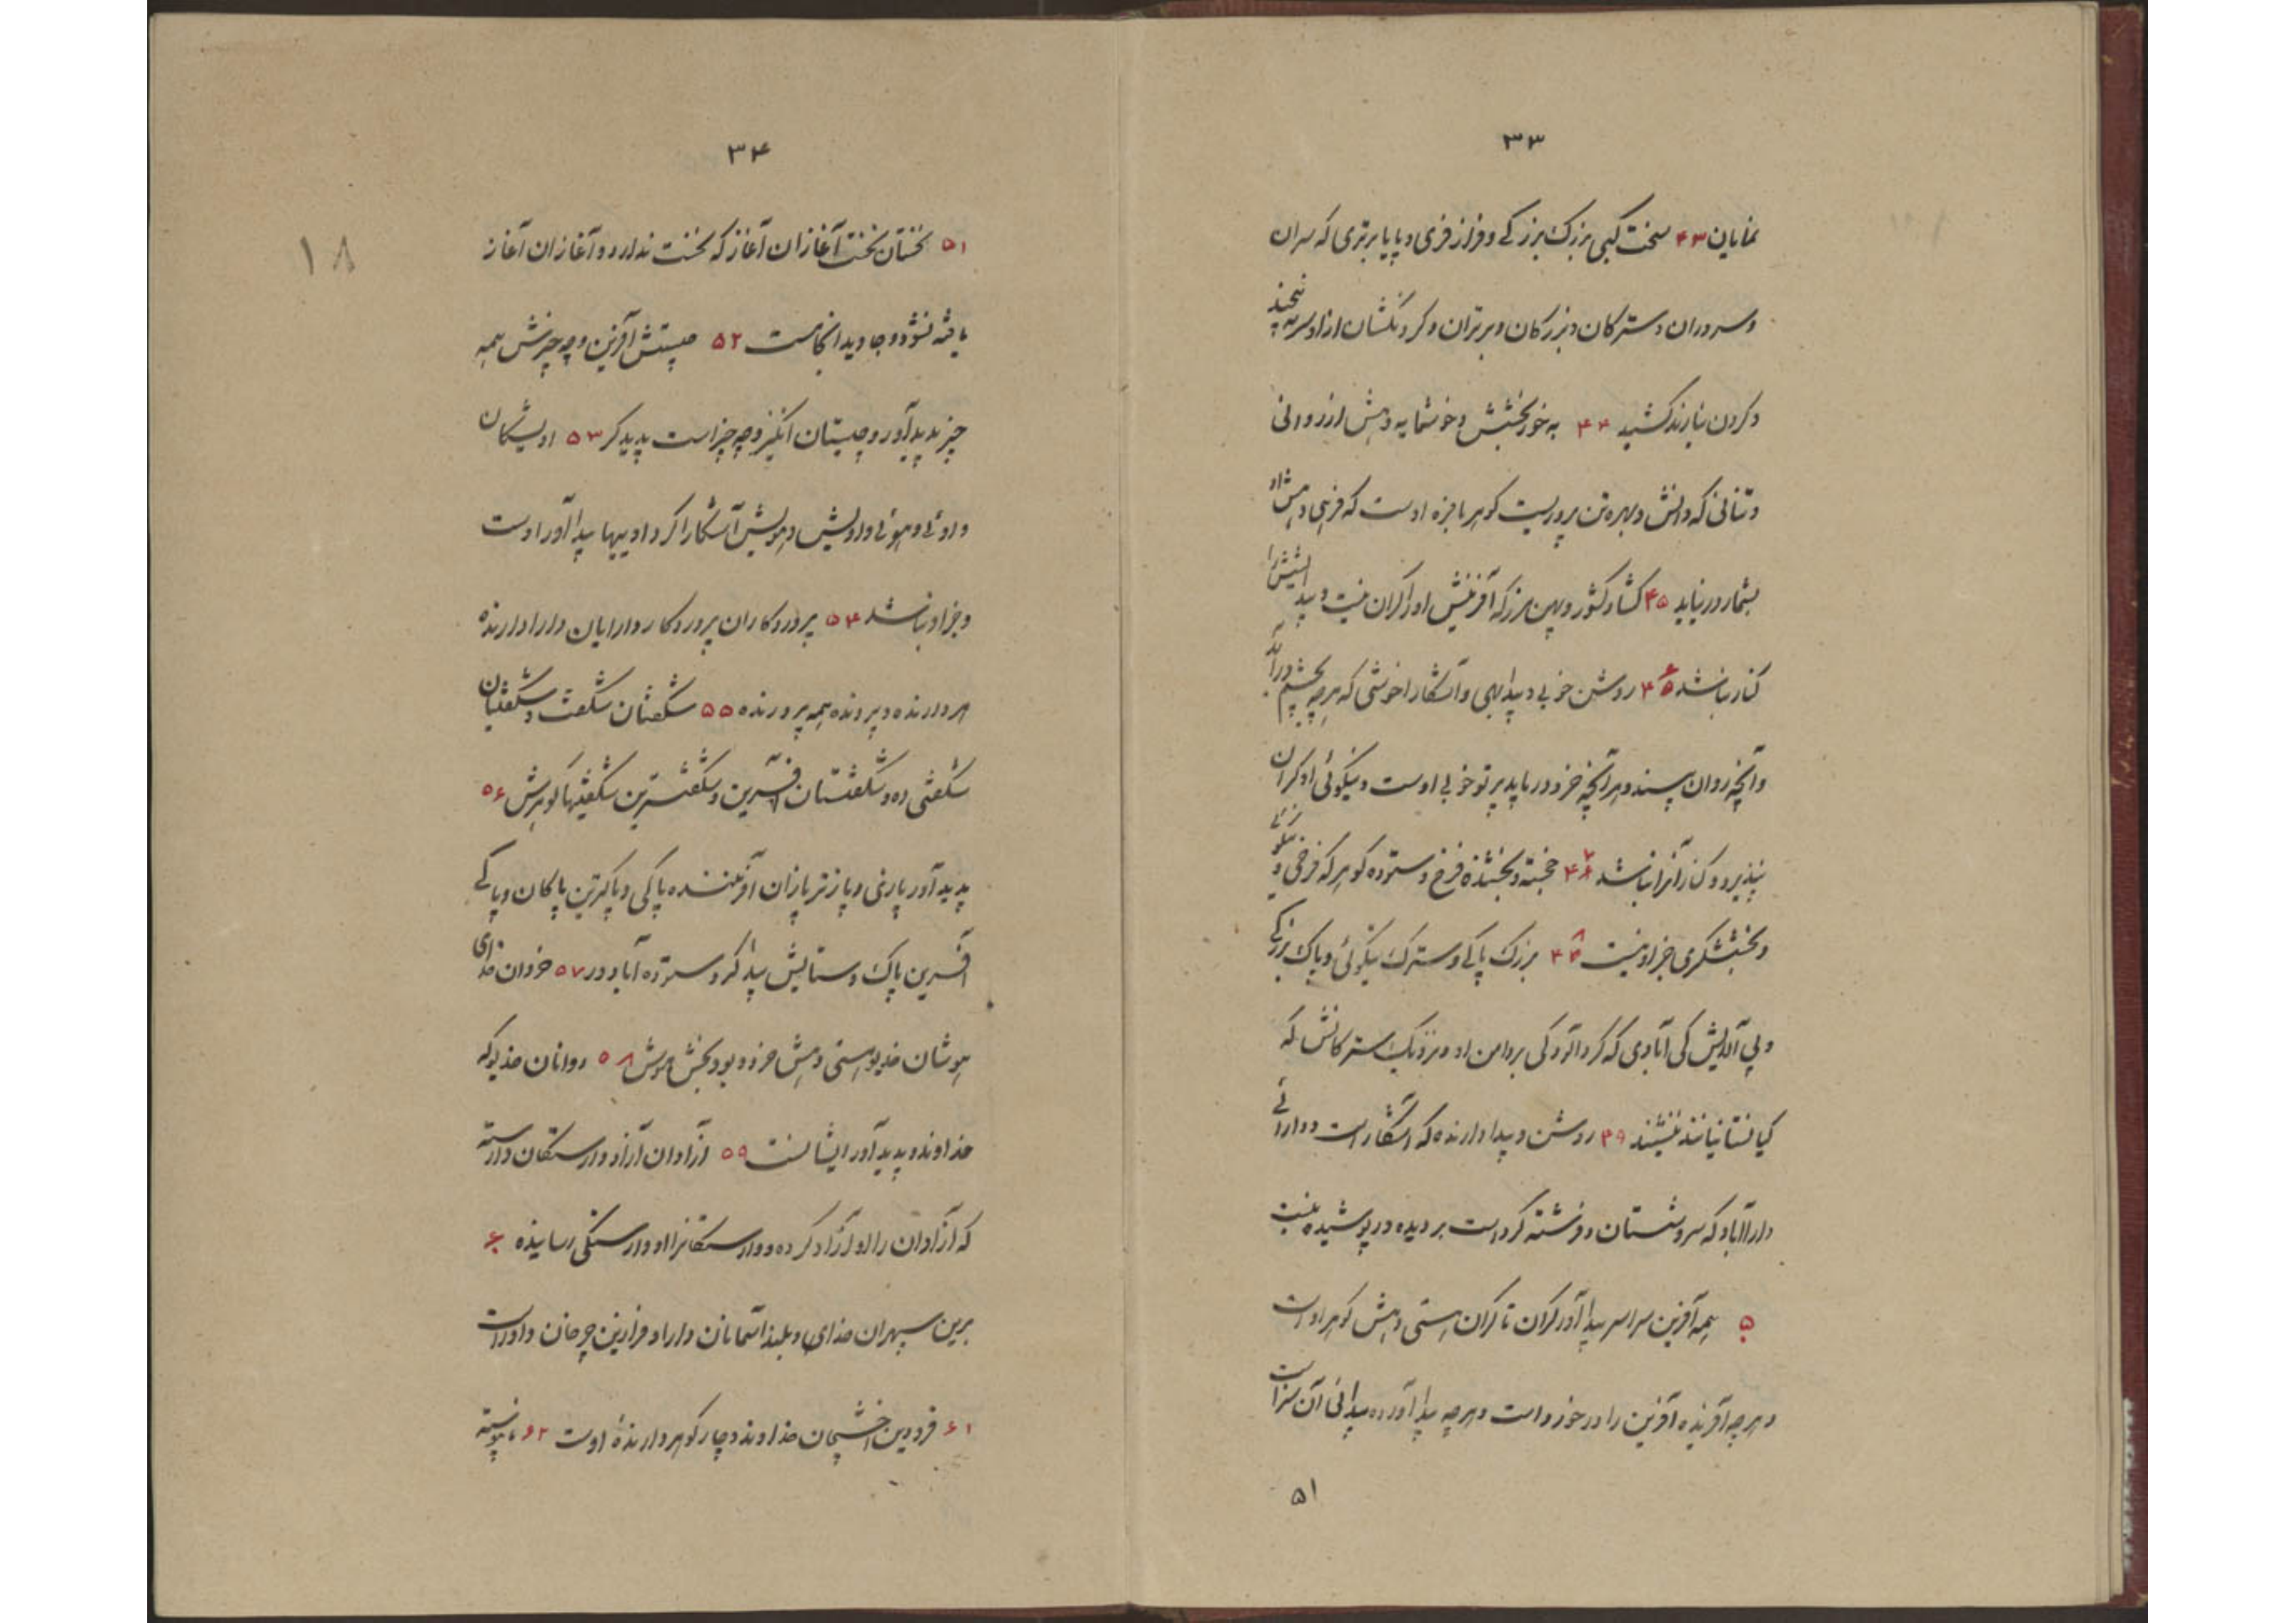 ۳۳
نمایان ۴۳ سخت کبی بزرگ بزرگی و فراز فری و پایا برتری که سران
و سروران و سترکان و بزرکان و برتران و کردنکشان ازاو سر نه پیچند
و کردن نیارند کشید ۴۴ به خور بخشش و خوشمایه دهش ارز روانی
و تنانی که دانش و بهره تن پروریست کوهر با فره اوست که فرهی دهش او
بشمار در نیاید ۴۵ کشاد کشور و پهن مرز که آفرینش او را کران نیست و پیدایشش را
کنار نباشد ۴۶ روشن خوبی و پیدا بهی و آشکارا خوشی که هرچه بچشم درآید
و آنچه روان پسند و هر آنچه خرد دریابد پرتو خوبی اوست و نیکوئی او کران
نپذیرد و کنار آنرا نباشد ۴۷ خجسته و بخشنده فرخ و ستوده کوهر که فرخی و نیکوئی
و بخششکری جز او نیست ۴۸ بزرک پاکی و سترک نیکوئی و پاک بزرکی
و بی آلایش کی آبادی که کرد آلودکی بر دامن او و نزدیک سترکانش که
کیانستانیانند ننشیند ۴۹ روشن و پیدا دارنده که آشکار است و دارائی
دارا آباد که سروشستان و فرشته کرد است بر دیده ور پوشیده نیست
۵۰ همه آفرین سراسر پیدا آور کران تا کران هستی دهش کوهر اوست
و هرچه آفریده آفرین را در خورد است و هرچه پیدا آورده پیدائی آن سزا است
۵۱
۳۴
۵۱ نخستان نخست آغازان آغاز که نخست ندارد و آغازان آغاز
یافته نشود و جاوید انجامست ۵۲ چیستش آفرین و چه چیزش همه
چیز پدید آور و چیستان انگیز و چه چیز است پدید کر ۵۳ اویشکان
و اوئی و هوئی و اویش و هویش آشکارا کر و اوییها پیدا آور اوست
و جز او نباشد ۵۴ پروردکاران پروردکار و دارایان دارا دارنده
هر دارنده و پرونده همه پرورنده ۵۵ شکفتان شکفت و شکفتیان
شکفتی ده و شکفتستان آفرین و شکفت ترین شکفتیها کوهرش ۵۶
پدید آور پازنی و پازتر پازان آفریننده پاکی و پاکترین پاکان و پاکی
آفرین پاک و ستایش پیدا کر و ستوده آباد ور ۵۷ خردان خدای
هوشان خدیو هستی دهش خرد و بود بخش هوش ۵۸ روانان خدیو که
خداوند و پدید آور ایشانست ۵۹ آزادان آزاد و وارستکان وارسته
که آزادان را او آزاد کرده و وارستکانرا او وارستکی رسانیده ۶۰
برین سپهران خدای و بلند آسمانان دارا و فرازین چرخان داور است
۶۱ فرودین اخشیجان خداوند و چار کوهر دارندۀ اوست ۶۲ ناپیوسته
۱۸